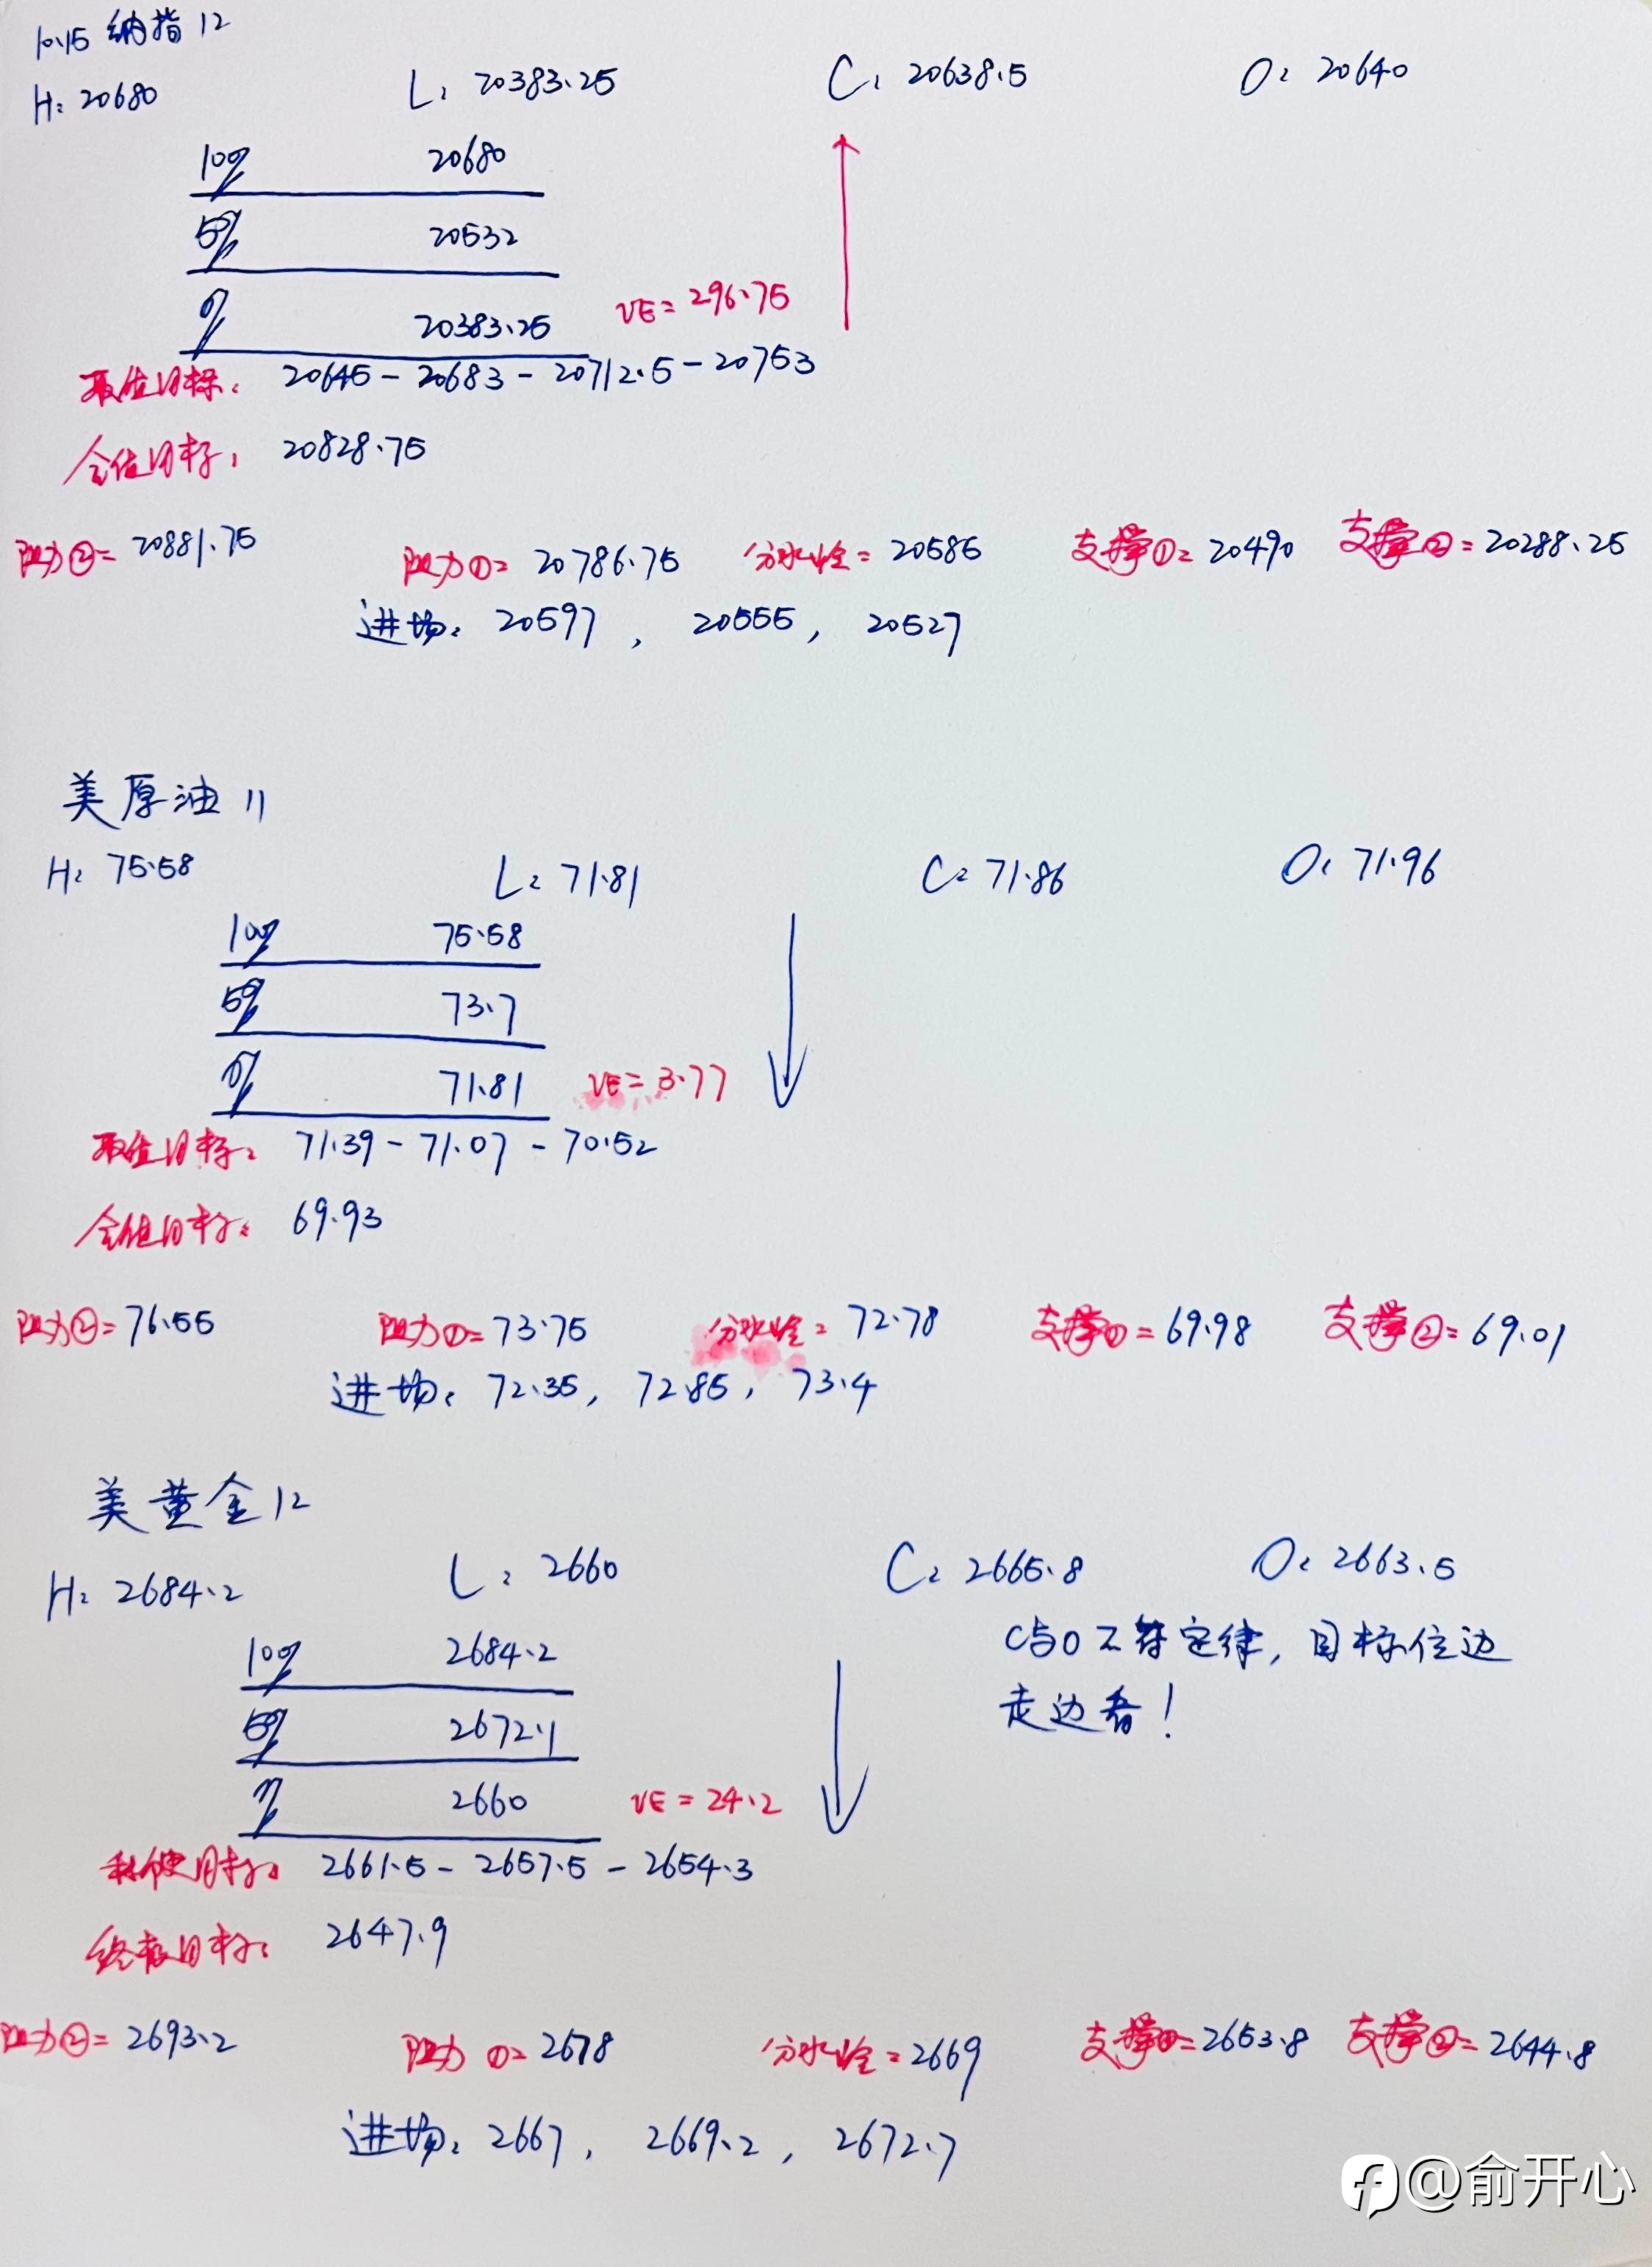 10.15 纳指12
H: 20680 L: 20383.25 C: 20638.5 O: 20640
100% 20680
50% 20532
0% 20383.25 VE=296.75
取值目标: 20645-20683-20712.5-20753
全值目标: 20828.75
阻力②=20881.75 阻力①=20786.75 分水岭=20585 支撑①=20490 支撑②=20288.25
进场: 20597, 20555, 20527
美原油11
H: 75.58 L: 71.81 C: 71.86 O: 71.96
100% 75.58
50% 73.7
0% 71.81 VE=3.77
取值目标: 71.39-71.07-70.52
全值目标: 69.93
阻力②=76.55 阻力①=73.75 分水岭=72.78 支撑①=69.98 支撑②=69.01
进场: 72.35, 72.85, 73.4
美黄金12
H: 2684.2 L: 2660 C: 2665.8 O: 2663.5
C与O不符定律,目标位边
走边看!
100% 2684.2
50% 2672.1
0% 2660 VE=24.2
目标: 2661.5-2657.5-2654.3
终极目标: 2647.9
阻力②=2693.2 阻力①=2678 分水岭=2669 支撑①=2653.8 支撑②=2644.8
进场: 2667, 2669.2, 2672.7
@俞开心